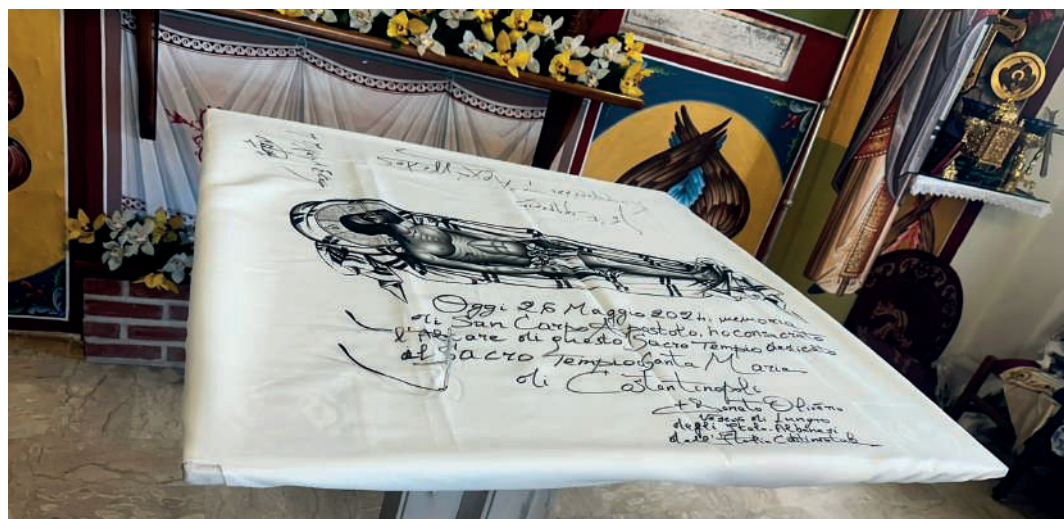 Oggi 26 Maggio 2024, memoria
di San Carpo Apostolo, ho consacrato
l'Altare di questo Sacro Tempio dedicato
al Sacro Tempio Santa Maria
di Costantinopoli
+ Donato Oliverio
Vescovo di Lungro
degli Italo-Albanesi
dell'Italia Continentale